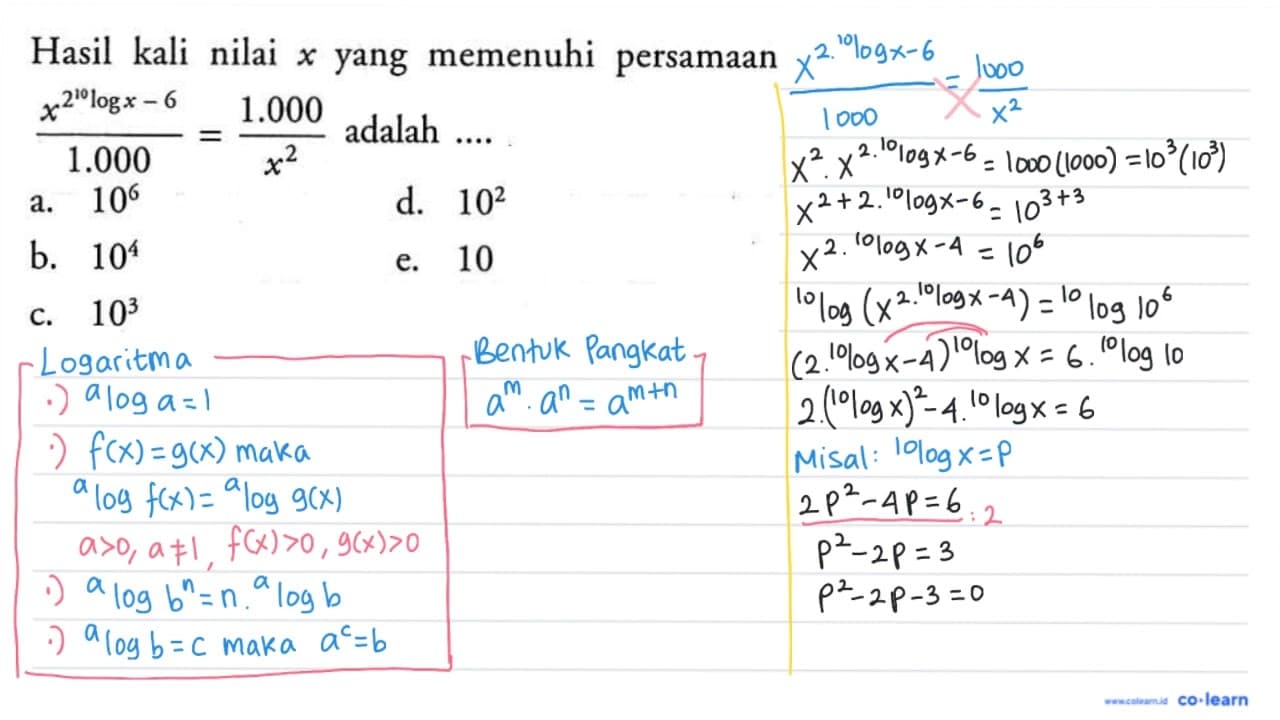 Hasil kali nilai x yang memenuhi persamaan
x^{2^{10}log x - 6} / 1.000 = 1.000 / x² adalah ....
a. 10⁶
d. 10²
b. 10⁴
e. 10
c. 10³
Logaritma
·) ᵃlog a = 1
·) f(x) = g(x) maka
ᵃlog f(x) = ᵃlog g(x)
a>0, a≠1, f(x)>0, g(x)>0
·) ᵃlog bⁿ = n. ᵃlog b
·) ᵃlog b = c maka aᶜ = b
Bentuk Pangkat
aᵐ · aⁿ = aᵐ⁺ⁿ
x^{2.¹⁰log x-6} / 1000 = 1000 / x²
x². x^{2.¹⁰log x-6} = 1000 (1000) = 10³(10³)
x^{2+2.¹⁰log x-6} = 10^{3+3}
x^{2.¹⁰log x-4} = 10⁶
¹⁰log (x^{2.¹⁰log x-4}) = ¹⁰log 10⁶
(2.¹⁰log x-4) ¹⁰log x = 6. ¹⁰log 10
2.(¹⁰log x)² - 4. ¹⁰log x = 6
Misal: ¹⁰log x = p
2p² - 4p = 6 :2
p² - 2p = 3
p² - 2p - 3 = 0
www.colearn.id co·learn